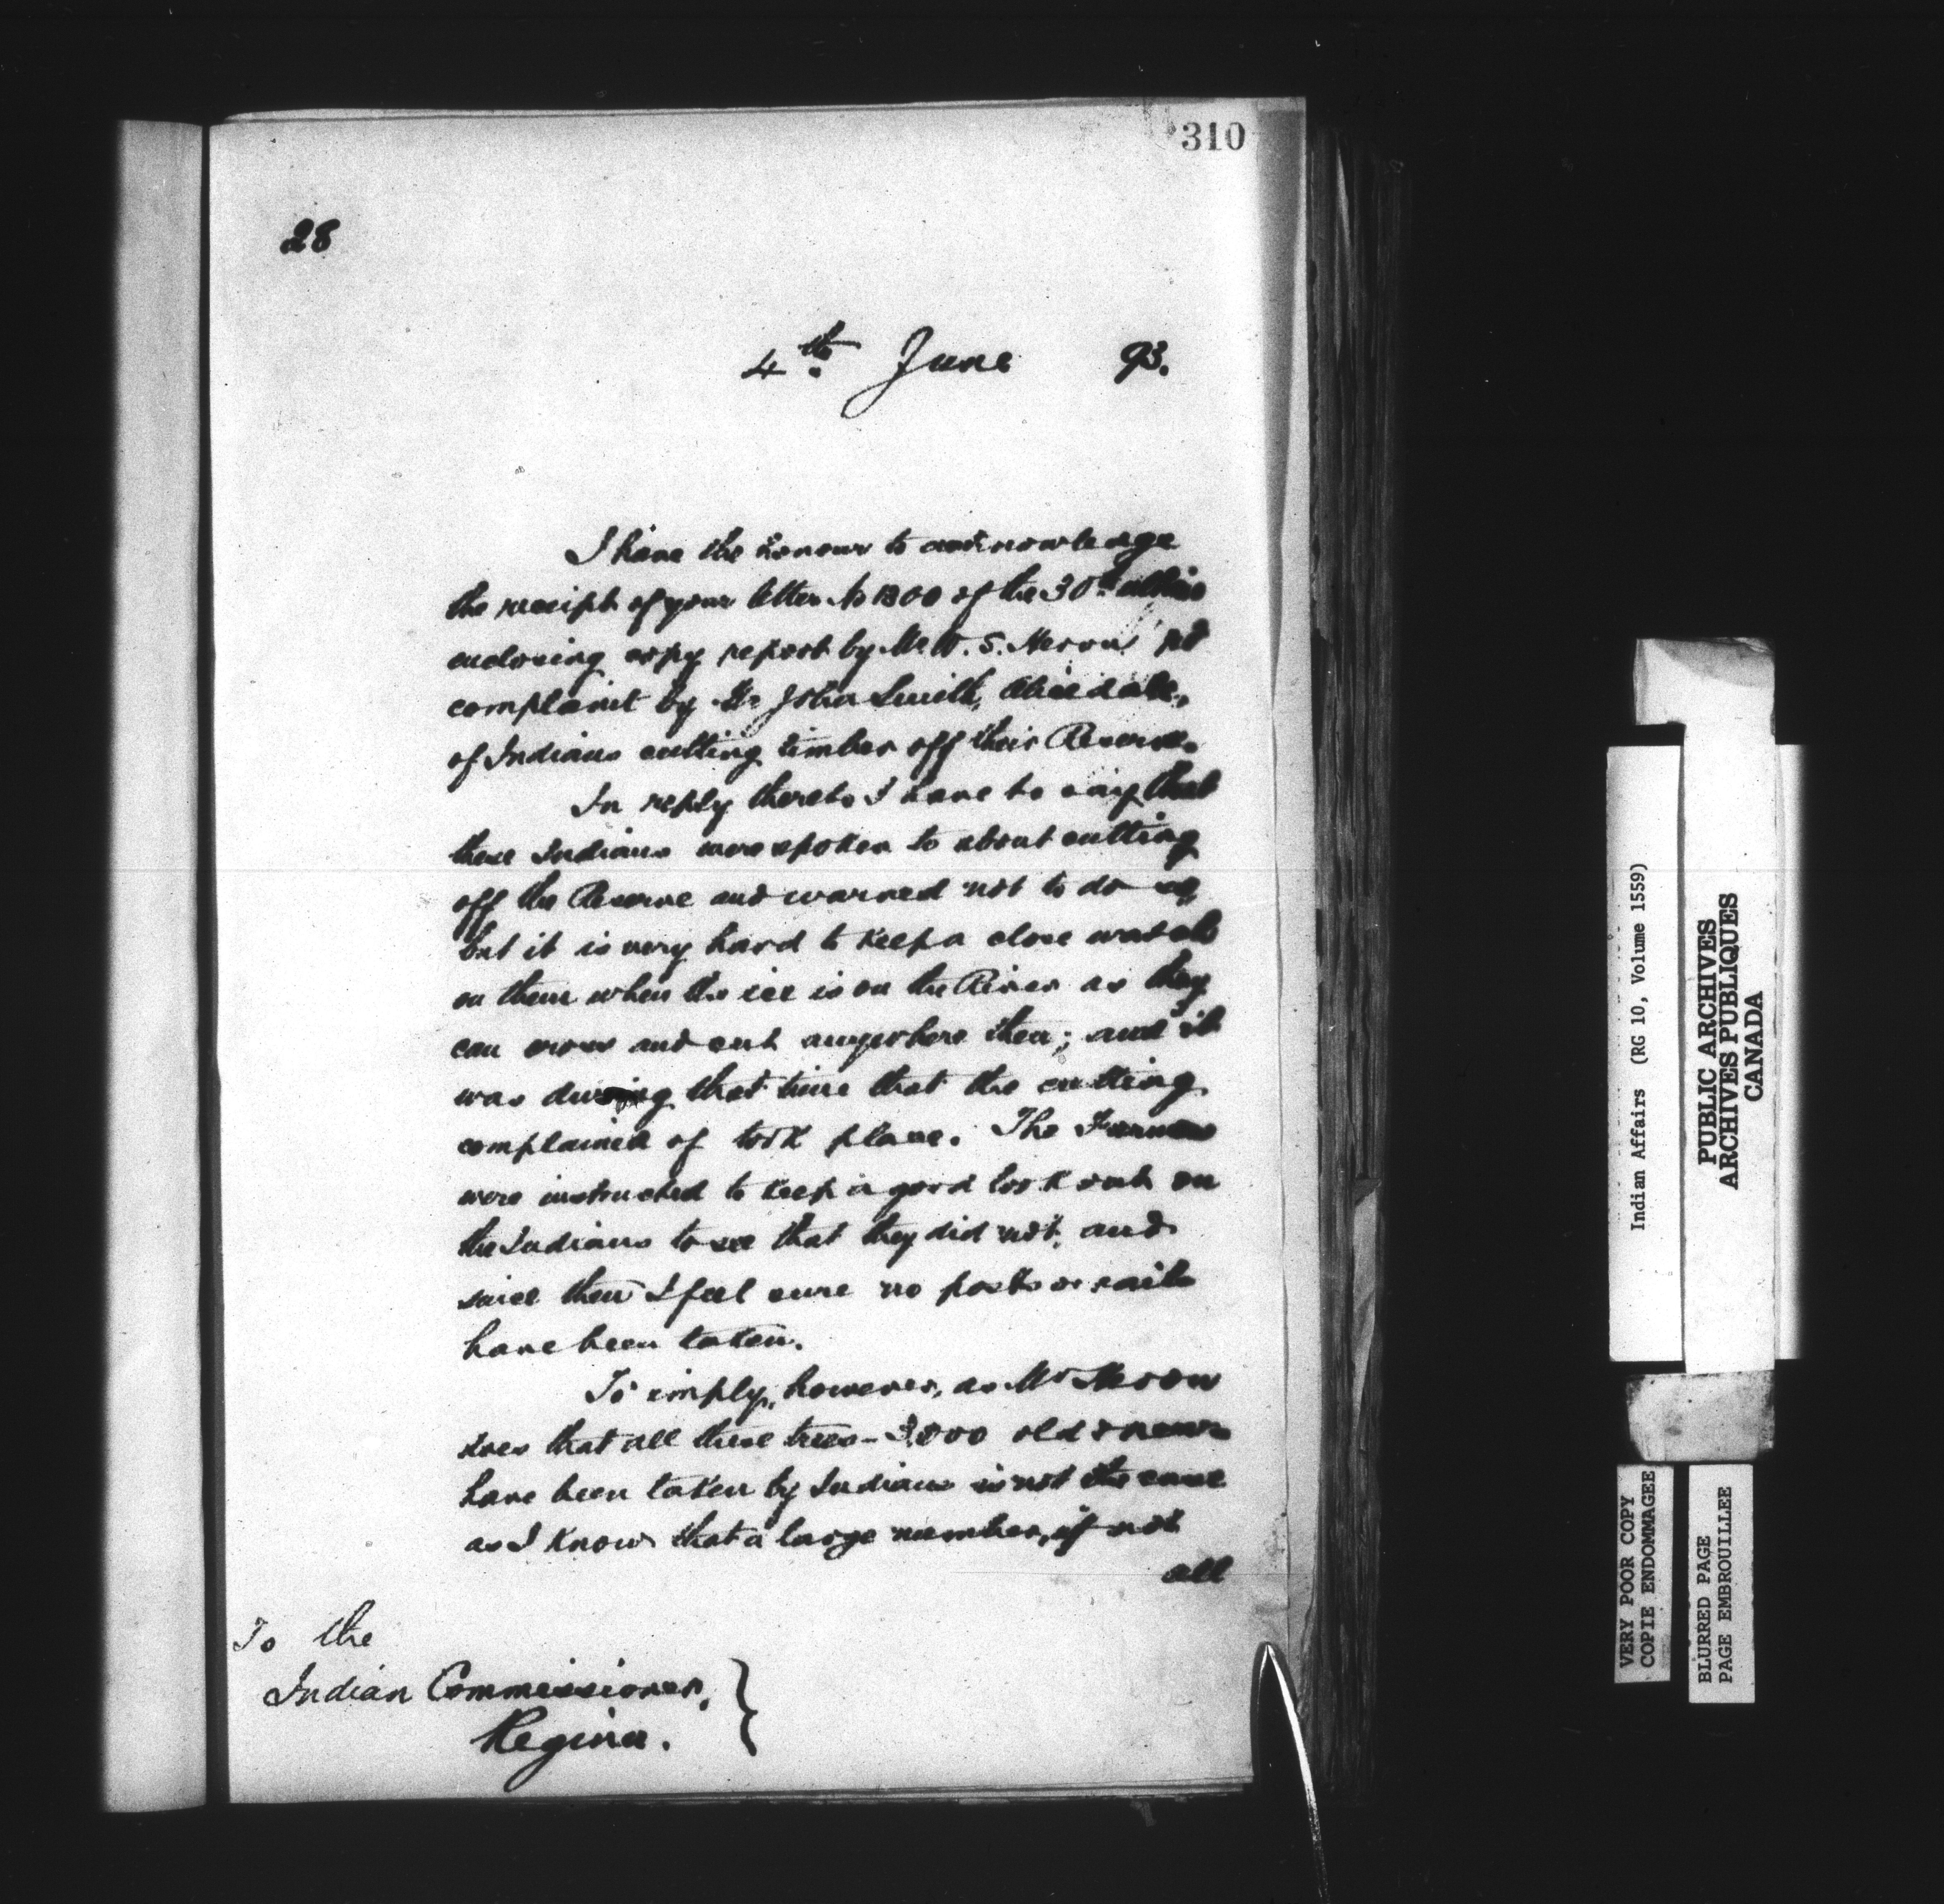 310
28
4th. June 93.
I have the honour to acknowledge
the receipt of your letter No 1300 of the 30th ultimo
enclosing copy report by Mr W. S. re
complaint by Mr John Smith,
of Indians cutting timber off their Reserve.
In reply thereto I have to say that
these Indians were spoken to about cutting
off the Reserve and warned not to do so,
but it is very hard to keep a close watch
on them when the ice is on the River as they
can cross and cut anywhere then; and it
was during that time that the cutting
complained of took place. The
were instructed to keep a good look out on
the Indians to see that they did not, and
since then I feel sure no posts or rails
have been taken.
To imply, however, as Mr
does that all these trees - 3,000 old & new
have been taken by Indians is not the case
as I know that a large number, if not
all
To the
Indian Commissioner,
Regina. }
Indian Affairs (RG 10, Volume 1559)
PUBLIC ARCHIVES
ARCHIVES PUBLIQUES
CANADA
VERY POOR COPY
COPIE ENDOMMAGEE
BLURRED PAGE
PAGE EMBROUILLEE